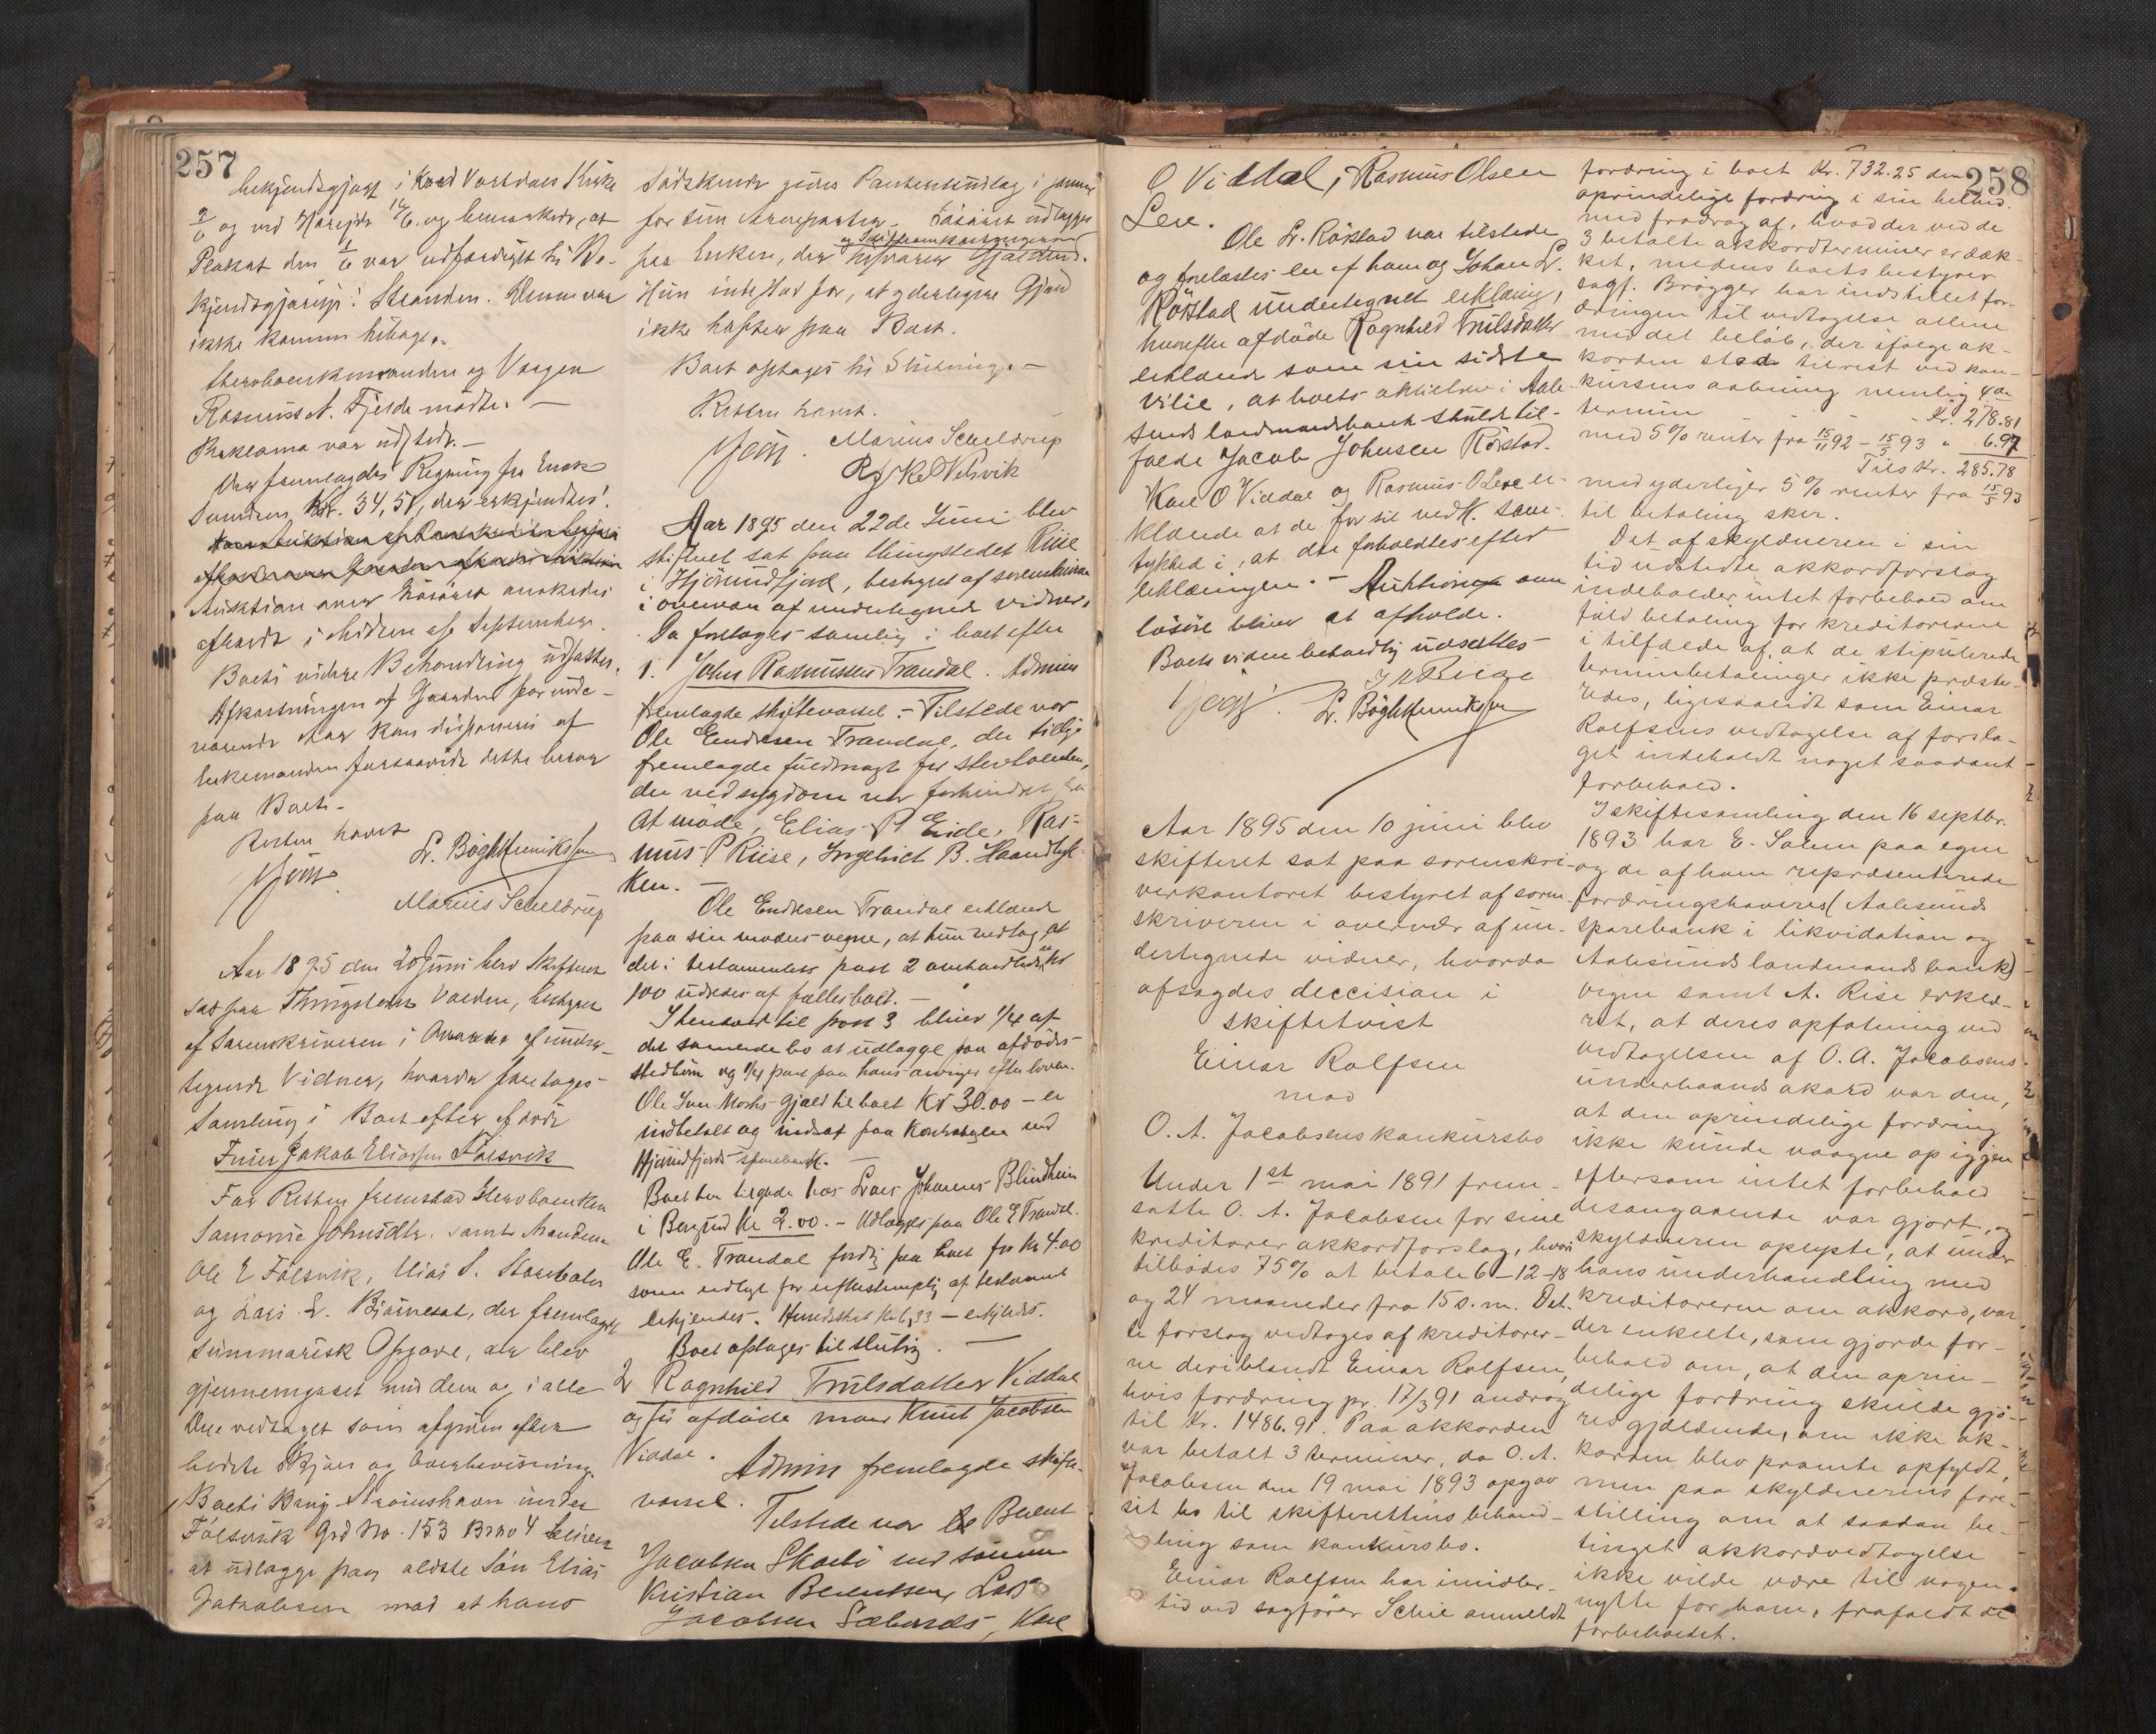 257
bekjendtgjort i Vartdals Kirke
2/6 og ved Hareids 16/6. og bemærkede, at
Plakat den 1/6 var udfærdiget til Be-
kjendtgjørelse i Stranden. Denne var
ikke kommen tilbage.
Stervboenkemanden og Vergen
Rasmus A. Fjelde mødte. —
Proklama var udstedt. —
Der fremlagdes Regning fra
Kr. 34,51, der erkjendtes.
Auktion over Løsøret ønskedes
afholdt i Midten af September.
Boets videre Behandling udsattes.
Afkastningen af Gaarden for inde-
værende Aar kan disponeres af
Enkemanden forsaavidt dette beror
paa Boet.
Retten hævet
L. Bögh Henrikssen
Marius Scheldrup
Aar 1895 den 20 Juni blev Skifteret
sat paa Thingstedet Volden, bestyret
af Sorenskriveren i Overvær af under-
tegnede Vidner, hvorda foretoges
Samling i Boet efter afdøde
Jakob Eliassen Folsvik
For Retten fremstod Stervboenken
Johnsdtr. samt Manden
Ole E Folsvik, Elias S.
og Lars L. Bjørneset, der fremlagde
summarisk Opgave, der blev
gjennemgaaet med dem og i alle
Dele vedtaget som afgiven efter
bedste Skjøn og Overbevisning.
Boets Brug Strømshavn under
Folsvik Grd No. 153 Brno 4 bliver
at udlægge paa ældste Søn Elias
Jakobsen mod at hans
Södskende gives Panteudlæg i samme
for sin Arvepart. Løsøret udlægges
paa Enken, der Gjælden.
Hun indestod for, at yderligere Gjæld
ikke hæfter paa Boet.
Boet optages til Slutning. —
Retten hævet.
Marius Scheldrup
R. K. Velsvik
Aar 1895 den 22de Juni blev
skifteret sat paa thingstedet Riise
i Hjörundfjord, bestyret af sorenskriveren
i overvær af undertegnede vidner.
Da foretoges samling i boet efter
1. John Rasmussen Trandal. Admin
fremlagde skiftevarsel. — Tilstede var
Ole Endresen Trandal, der tidligere
fremlagde fuldmagt for stervboenken,
der ved sygdom var forhindret fra
at møde, Elias P Eide, Ras-
mus P Riise, Ingebrict B. Haandlyk-
ken. —
Ole Endresen Trandal erklærede
paa sin moders vegne, at hun vedtog at
det i testamentets post 2 omhandlede Kr
100 udredes af fællesboet. —
I henhold til post 3 bliver 1/4 af
det samlede bo at udlægge paa afdødes
stedsøn og 1/4 part paa hans arvinger efter loven.
Ole Iver Moshs gjæld til boet Kr 30.00 — er
indbetalt og indsat paa Kontrabog ved
Hjörundfjords sparebank. —
Boet har tilgode hos Lars Johannes Blindheim
i Borgund Kr 2.00. — Udlægges paa Ole E Trandal.
Ole E. Trandal fordrig paa boet for Kr 4.00
som udlagt for eftestempling af testament
erkjendes. Hundeskat Kr 6,33 — erkjendes.
Boet optages til slutnig. —
2 Ragnhild Trulsdatter Viddal
og før afdøde mand Knut Jacobsen
Viddal. Admin fremlagde skifte-
varsel.
Tilstede var Berent
Jacobsen Skarbö med sønnen
Kristian Berentsen, Lars
Jacobsen Sæbønes, Karl
258
O Viddal, Rasmus Olsen
Leve.
Ole L. Röstad var tilstede
og fremlagdes en af ham og Johan L.
Röstad undertegnet erklæring,
hvorefter afdöde Ragnhild Trulsdatter
erklærede som sin sidste
vilie, at boets aktie i Aale-
sunds landmandsbank skulde til-
falde Jacob Johnsen Röstad.
Karl O Viddal og Rasmus O Leve er-
klærede at de for sit vedk. sam-
tykked i, at der forholdtes efter
erklæringen. — Auktion over
løsöre bliver at afholde.
Boets videre behandlig udsattes
J R Riise
L. Bögh Henrikssen
Aar 1895 den 10 juni blev
skifteret sat paa sorenskri-
verkontoret bestyret af soren-
skriveren i overvær af un-
dertegnede vidner, hvorda
afsagdes deccision i
skiftetvist
Einar Rolfsen
mod
O. A. Jacobsens konkursbo
Under 1st mai 1891 frem-
satte O. A. Jacobsen for sine
kreditorer akkordforslag, hvori
tilbødes 75% at betale 6–12–18
og 24 maaneder fra 15 s.m. Det-
te forslag vedtoges af kreditorer-
ne deriblandt Einar Rolfsen,
hvis fordring pr. 17/3 91 androg
til Kr. 1486.91. Paa akkorden
var betalt 3 terminer, da O. A.
Jacobsen den 19 mai 1893 opgav
sit bo til skifterettens behand-
ling som konkursbo.
Einar Rolfsen har imidler-
tid ved sagfører Schie anmeldt
fordring i boet Kr. 732.25 den
oprindelige fordring i sin helhed
med fradrag af, hvad der ved de
3 betalte akkordterminer er dæk-
ket, medens boets bestyrer
sagf. Brøgger har indstillet for-
dringen til vedtagelse allene
med det beløb, der ifølge ak-
korden stod tilrest ved kon-
kursens aabning nemlig 4de
termin - - Kr. 278.81
med 5% renter fra 15/11 92 – 15/5 93 " 6.97
Tils Kr. 285.78
med yderligere 5% renter fra 15/5 93
til betaling sker.
Det af skyldneren i sin
tid udstedte akkordforslag
indeholder intet forbehold om
fuld betaling for kreditorerne
i tilfælde af, at de stipulerede
terminbetalinger ikke præste-
redes, ligesaalidt som Einar
Rolfsens vedtagelse af forsla-
get indeholdt noget saadant
forbehold.
I skiftesamling den 16 septbr.
1893 har E. Saum paa egne
og de af ham repræsenterede
fordringshaveres (Aalesunds
sparebank i likvidation og
Aalesunds landmandsbank)
vegne samt A. Rise erklæ-
ret, at deres opfatning ved
vedtagelsen af O. A. Jacobsens
underhaands akord var den,
at den oprindelige fordring
ikke kunde vaagne op iggjen
eftersom intet forbehold
desangaaende var gjort, og
skyldneren oplyste, at under
hans underhandling med
kreditorerne om akkord, var
der enkelte, som gjorde for-
behold om, at den oprin-
delige fordring skulde gjø-
res gjældende, om ikke ak-
korden blev promte opfyldt,
men paa skyldnerens fore-
stilling om at saadan be-
tinget akkordvedtagelse
ikke vilde være til nogen
nytte for ham, frafaldt de
forbeholdet.